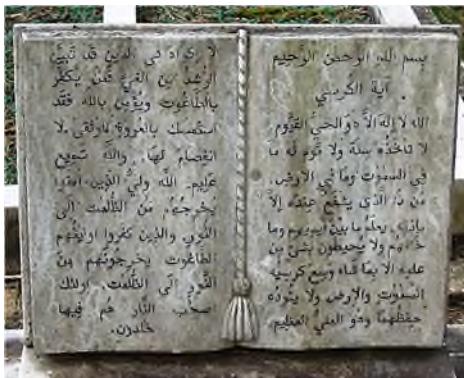 بسم الله الرحمن الرحيم
آية الكرسي
الله لا إله إلا هو الحي القيوم
لا تأخذه سنة ولا نوم له ما
في السموت وما في الارض
من ذا الذي يشفع عنده إلا
بإذنه يعلم ما بين ايديهم وما
خلفهم ولا يحيطون بشئ من
علمه الا بما شاء وسع كرسيه
السموت والارض ولا يئوده
حفظهما وهو العلي العظيم
لا إكراه في الدين قد تبين
الرشد من الغي فمن يكفر
بالطاغوت ويؤمن بالله فقد
استمسك بالعروة الوثقى لا
انفصام لها والله سميع
عليم. الله ولي الذين امنوا
يخرجهم من الظلمت الى
النور والذين كفروا اوليئهم
الطاغوت يخرجونهم من
النور الى الظلمت اولئك
اصحب النار هم فيها
خلدون.